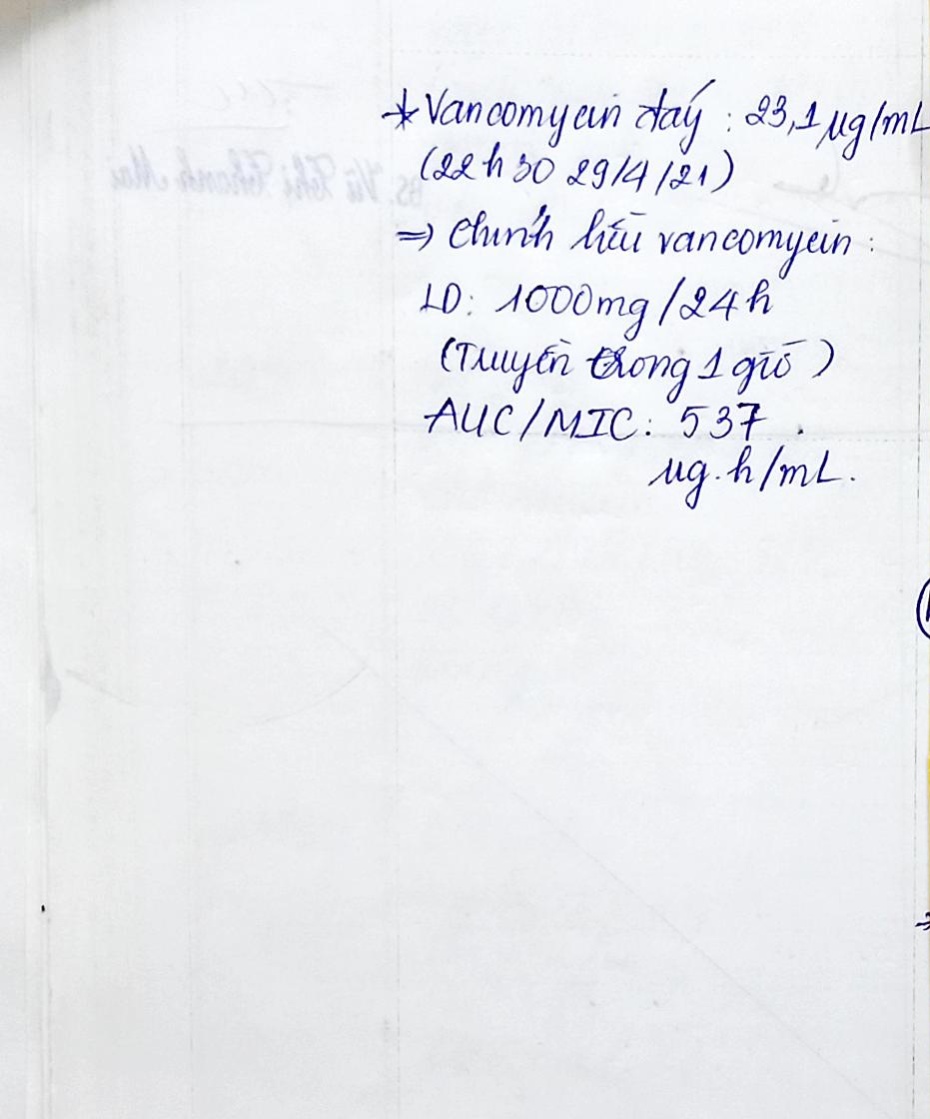 * Vancomycin đáy : 23,1 µg/mL
(22h30 29/4/21)
=> Chỉnh liều vancomycin :
LD: 1000mg/24h
(Truyền trong 1 giờ)
AUC/MIC: 537
µg.h/mL.
BS. Vũ Thị Thanh Mai